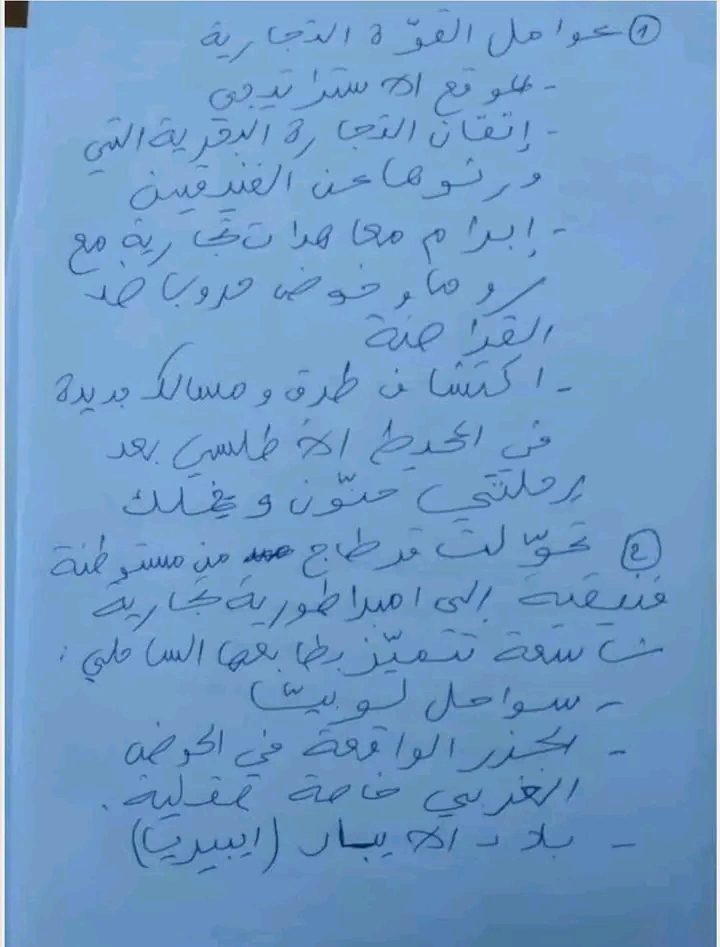 ① عوامل القوّة التجارية
- الموقع الاستراتيجي
- إتقان التجارة البحرية التي
ورثوها عن الفينيقيين
- إبرام معاهدات تجارية مع
روما و خوض حروب ضد
القراصنة
- اكتشاف طرق و مسالك جديدة
في المحيط الأطلسي بعد
رحلتي حنّون و خملك
② تحوّلت قرطاج من مستوطنة
فنيقية إلى امبراطورية تجارية
شاسعة تتميّز بطابعها الساحلي :
- سواحل لوبيّا
- الجزر الواقعة في الحوض
الغربي خاصة صقلية .
- بلاد الايبار (ايبيريا)